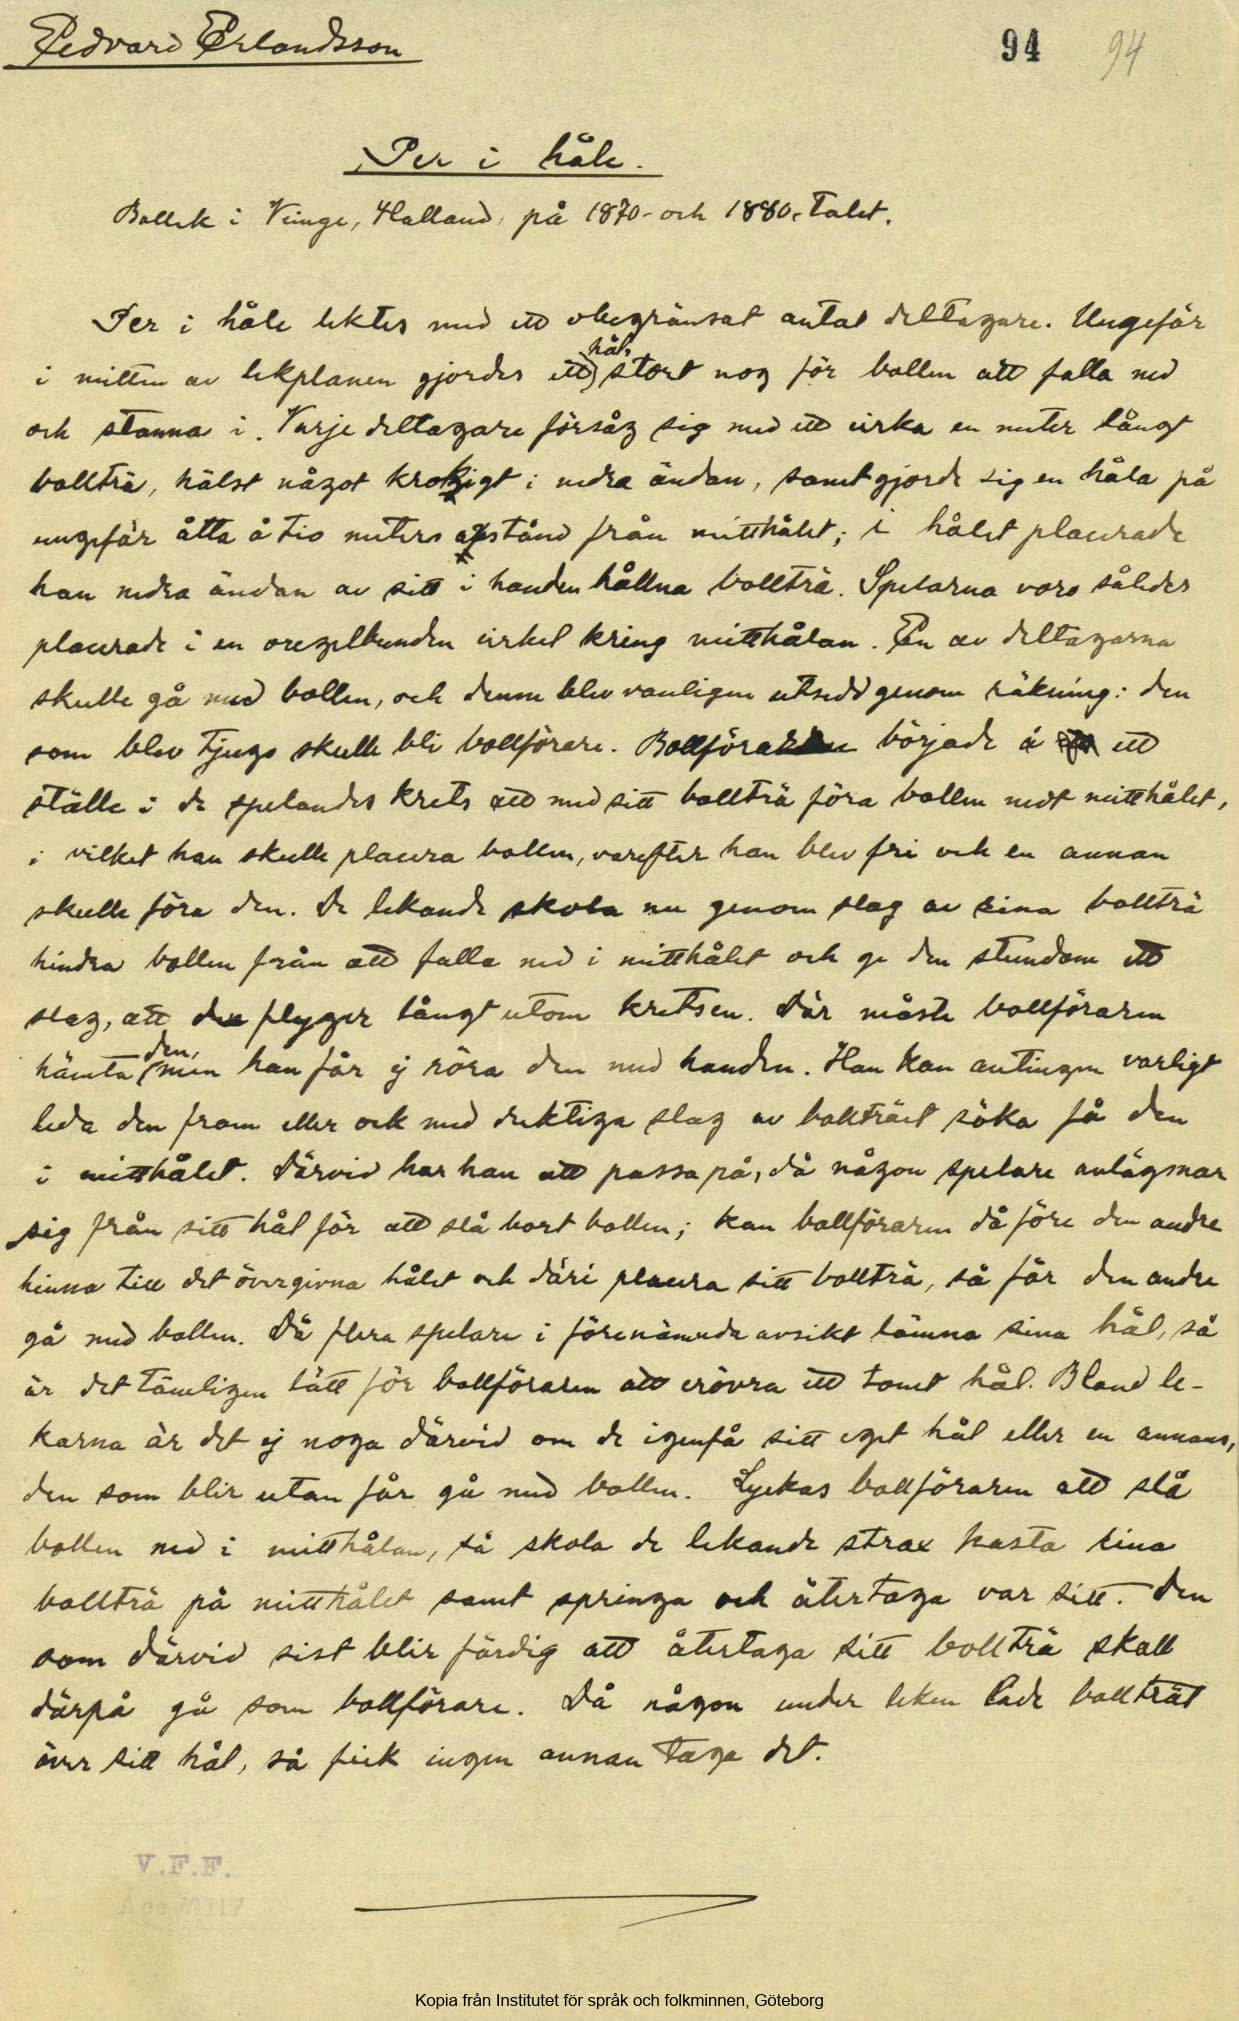 Edvard Erlandsson
94 94
Per i håle.
Bollek i Veinge, Halland, på 1870- och 1880-talet.
Per i håle lektes med ett obegränsat antal deltagare. Ungefär
i mitten av lekplanen gjordes ett hål, stort nog för bollen att falla ned
och stanna i. Varje deltagare försåg sig med ett cirka en meter långt
bollträ, hälst något krokigt i nedra ändan, samt gjorde sig en håla på
ungefär åtta å tio meters avstånd från mitthålet; i hålet placerade
han nedra ändan av sitt i handen hållna bollträ. Spelarna voro således
placerade i en oregelbunden cirkel kring mitthålan. En av deltagarna
skulle gå med bollen, och denne blev vanligen utsedd genom räkning: den
som blev tjugo skulle bli bollförare. Bollföraren började å ett
ställe i de spelandes krets att med sitt bollträ föra bollen mot mitthålet,
i vilket han skulle placera bollen, varefter han blev fri och en annan
skulle föra den. De lekande skola nu genom slag av sina bollträ
hindra bollen från att falla ned i mitthålet och ge den stundom ett
slag, att den flyger långt utom kretsen. Där måste bollföraren
hämta den, men han får ej röra den med handen. Han kan antingen varligt
leda den fram eller ock med duktiga slag av bollträet söka få den
i mitthålet. Därvid har han att passa på, då någon spelare avlägsnar
sig från sitt hål för att slå bort bollen; kan bollföraren då före den andre
hinna till det övergivna hålet och däri placera sitt bollträ, så får den andre
gå med bollen. Då flera spelare i förenämnda avsikt lämna sina hål, så
är det tämligen lätt för bollföraren att erövra ett tomt hål. Bland le-
karna är det ej noga därvid om de igenfå sitt eget hål eller en annans,
den som blir utan får gå med bollen. Lyckas bollföraren att slå
bollen ned i mitthålan, så skola de lekande strax kasta sina
bollträ på mitthålet samt springa och återtaga var sitt. Den
som därvid sist blir färdig att återtaga sitt bollträ skall
därpå gå som bollförare. Då någon under leken lade bollträt
över sitt hål, så fick ingen annan taga det.
V.F.F.
Kopia från Institutet för språk och folkminnen, Göteborg